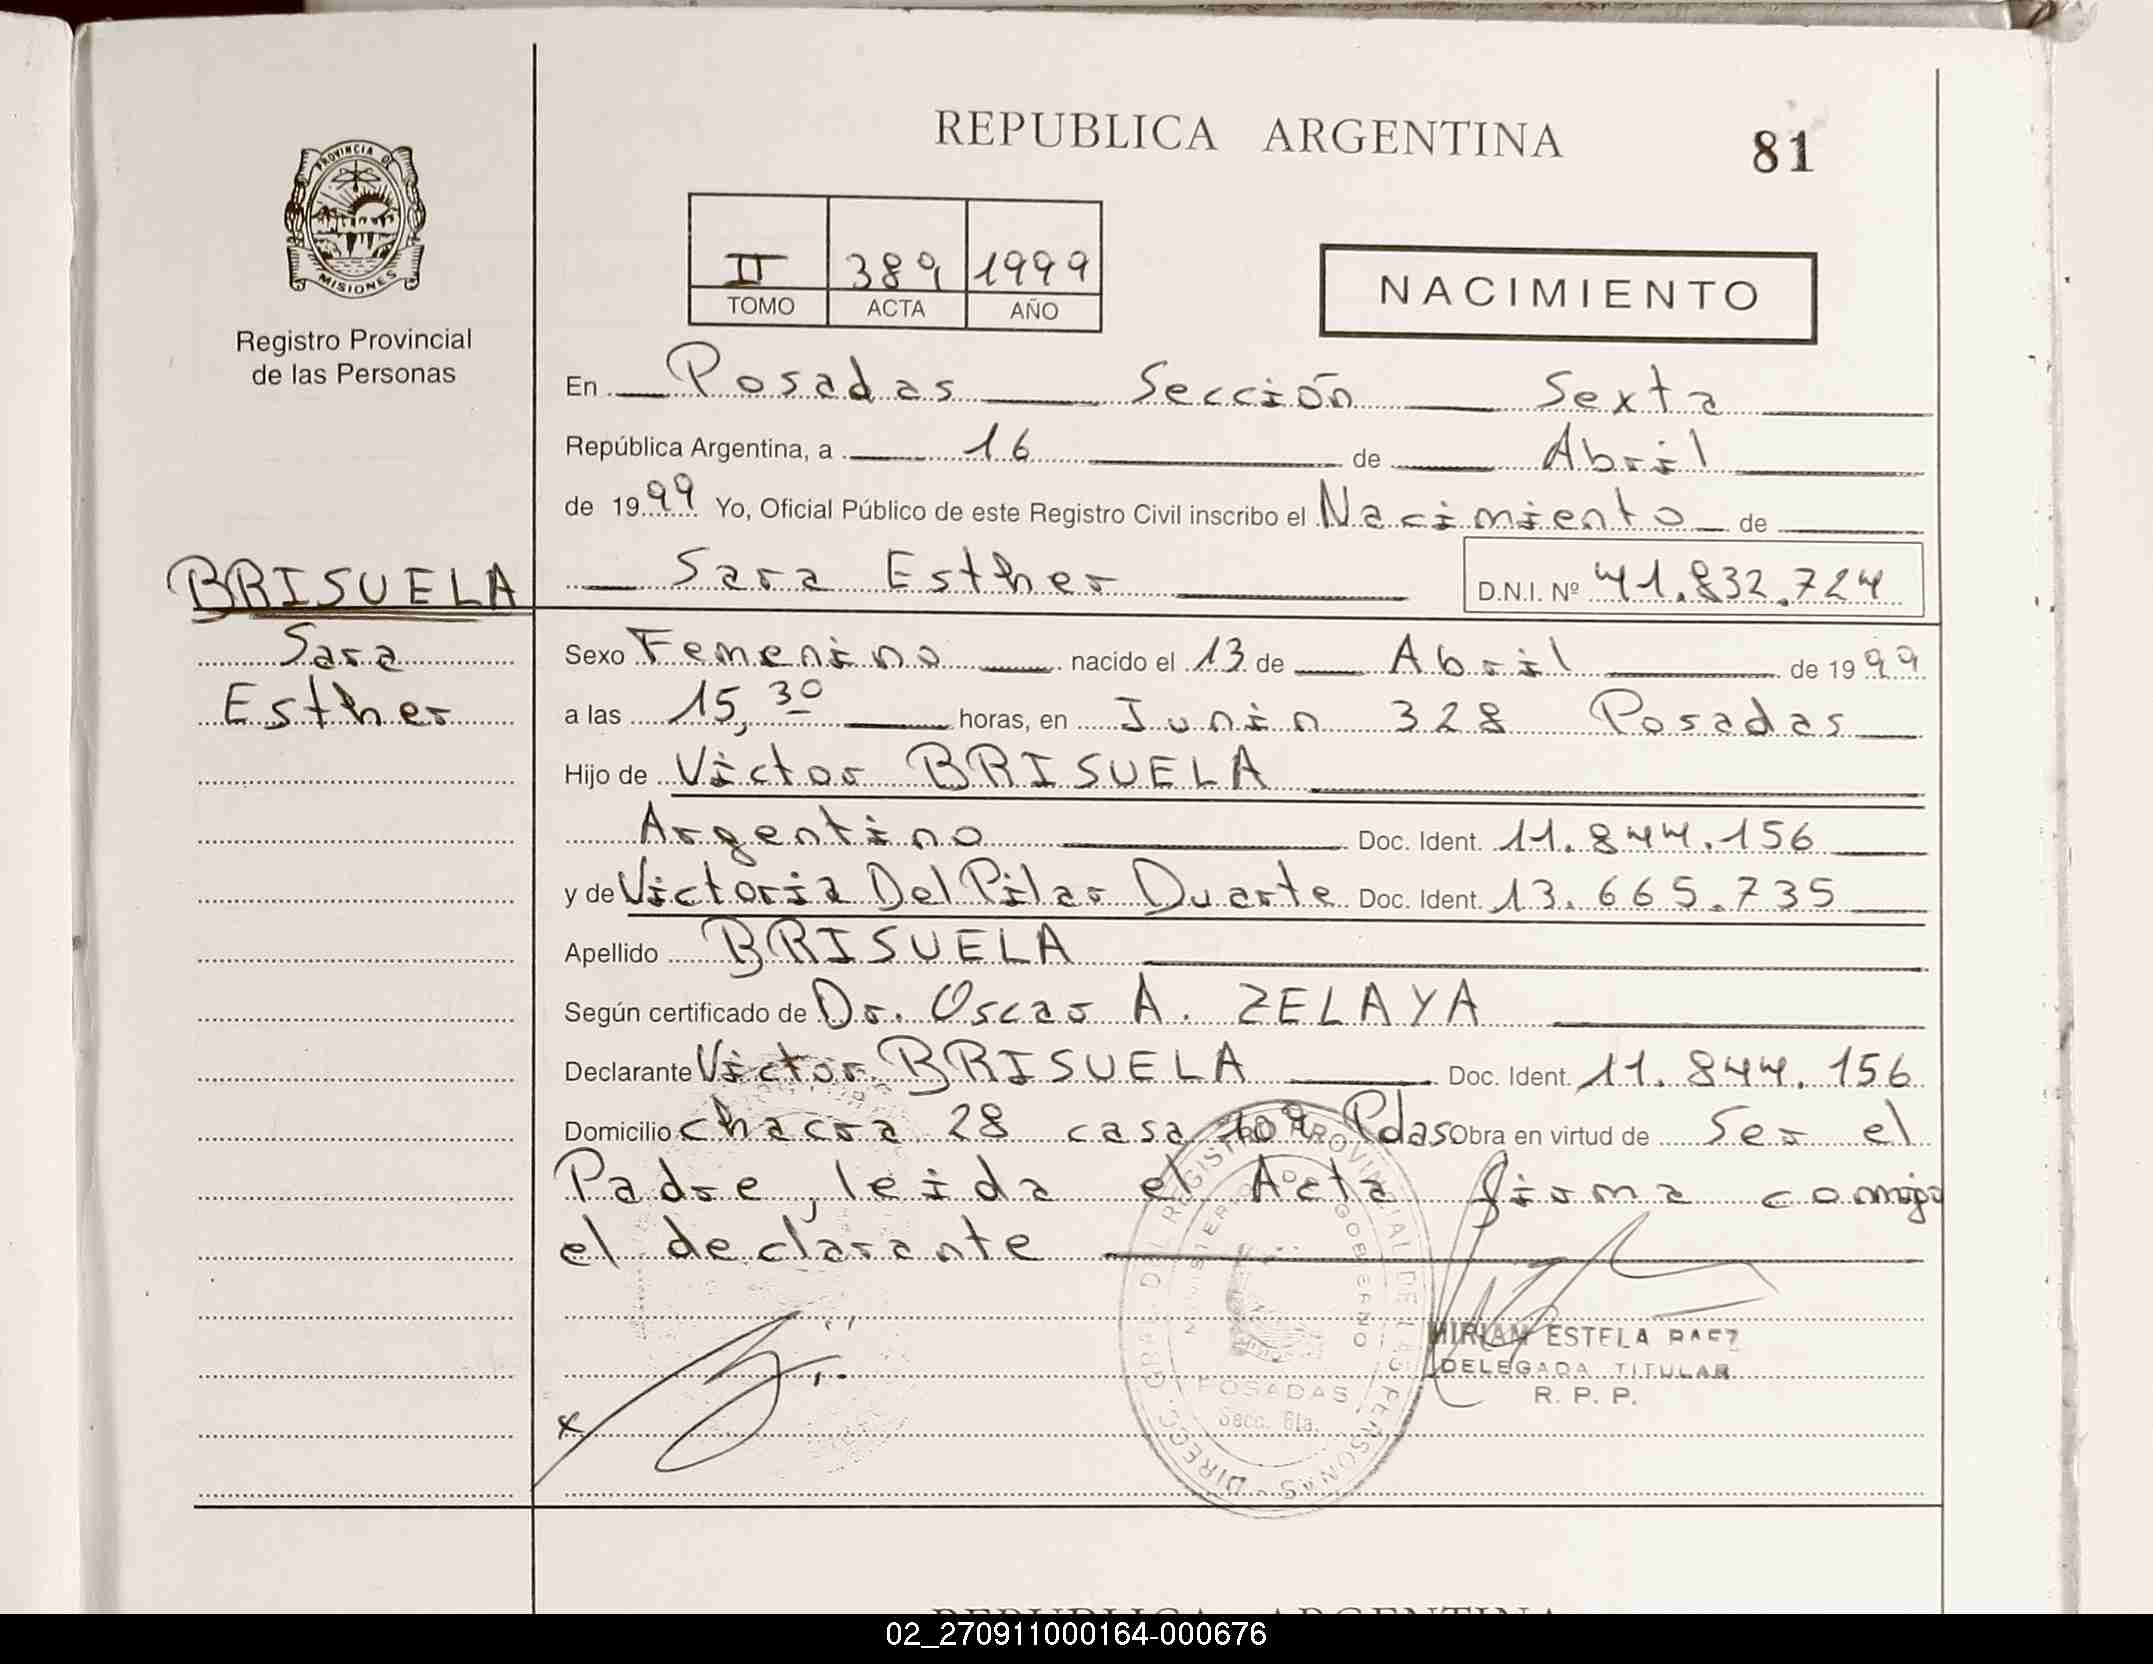 REPUBLICA ARGENTINA
81
PROVINCIA DE
MISIONES
Registro Provincial
de las Personas
II 389 1999
TOMO ACTA AÑO
NACIMIENTO
En Posadas Sección Sexta
República Argentina, a 16 de Abril
de 1999 Yo, Oficial Público de este Registro Civil inscribo el Nacimiento de
Sara Esther D.N.I. Nº 41.832.724
BRISUELA
Sara
Esther
Sexo Femenino nacido el 13 de Abril de 1999
a las 15,30 horas, en Junin 328 Posadas
Hijo de Victor BRISUELA
Argentino Doc. Ident. 11.844.156
y de Victoria Del Pilar Duarte Doc. Ident. 13.665.735
Apellido BRISUELA
Según certificado de Dr. Oscar A. ZELAYA
Declarante Victor BRISUELA Doc. Ident. 11.844.156
Domicilio chacra 28 casa 109 Pdas Obra en virtud de Ser el
Padre, leida el Acta firma comigo
el declarante
DIRECC. GRAL. DEL REGISTRO PROVINCIAL DE LAS PERSONAS
MINISTERIO DE GOBIERNO
POSADAS
Secc. 6ta.
MIRIAN ESTELA PAEZ
DELEGADA TITULAR
R. P. P.
x
REPUBLICA ARGENTINA
02_270911000164-000676